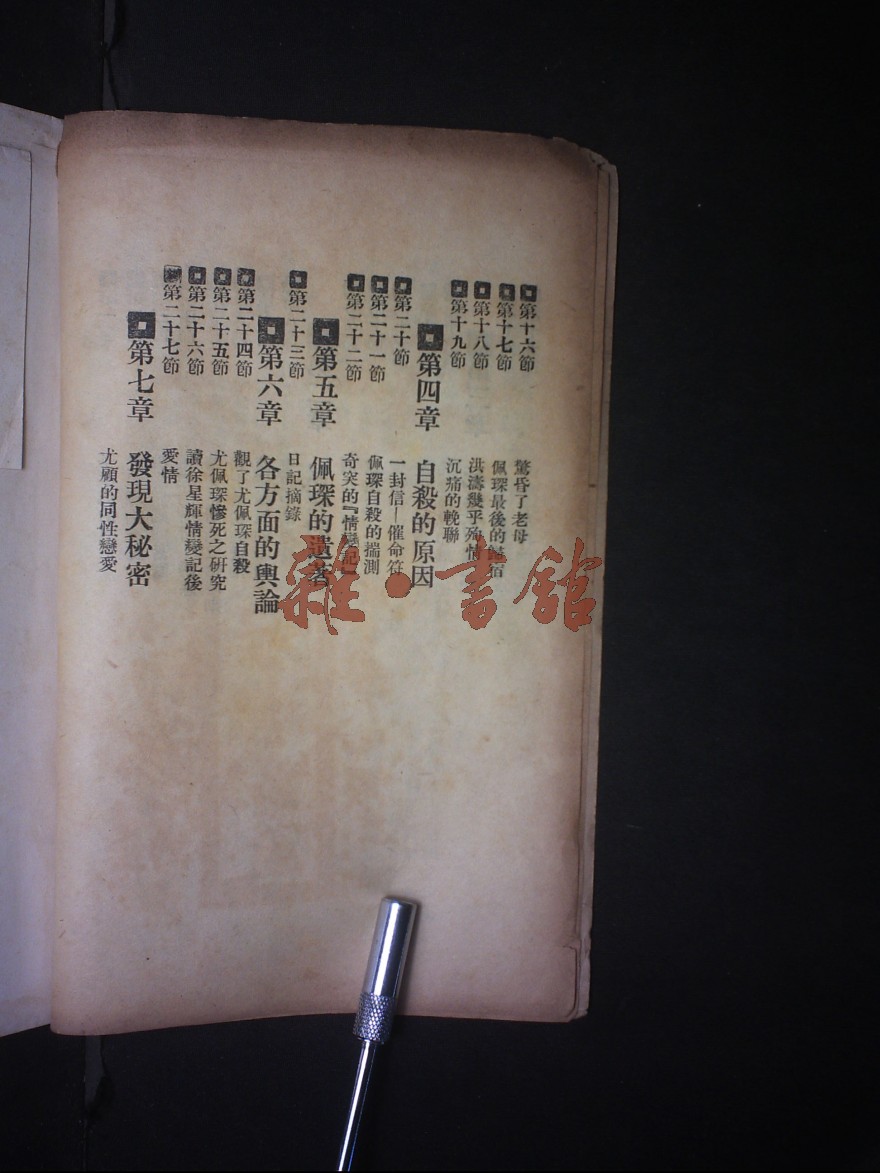 第十六節 驚昏了老母
第十七節 佩琛最後的歸宿
第十八節 洪濤幾乎殉情
第十九節 沉痛的輓聯
第四章 自殺的原因
第二十節 一封信—催命符
第二十一節 佩琛自殺的揣測
第二十二節 奇突的『情變記』
第五章 佩琛的遺著
第二十三節 日記摘錄
第六章 各方面的輿論
第二十四節 觀了尤佩琛自殺
第二十五節 尤佩琛慘死之研究
第二十六節 讀徐星輝情變記後
第二十七節 愛情
第七章 發現大秘密
尤顧的同性戀愛
雜·書館